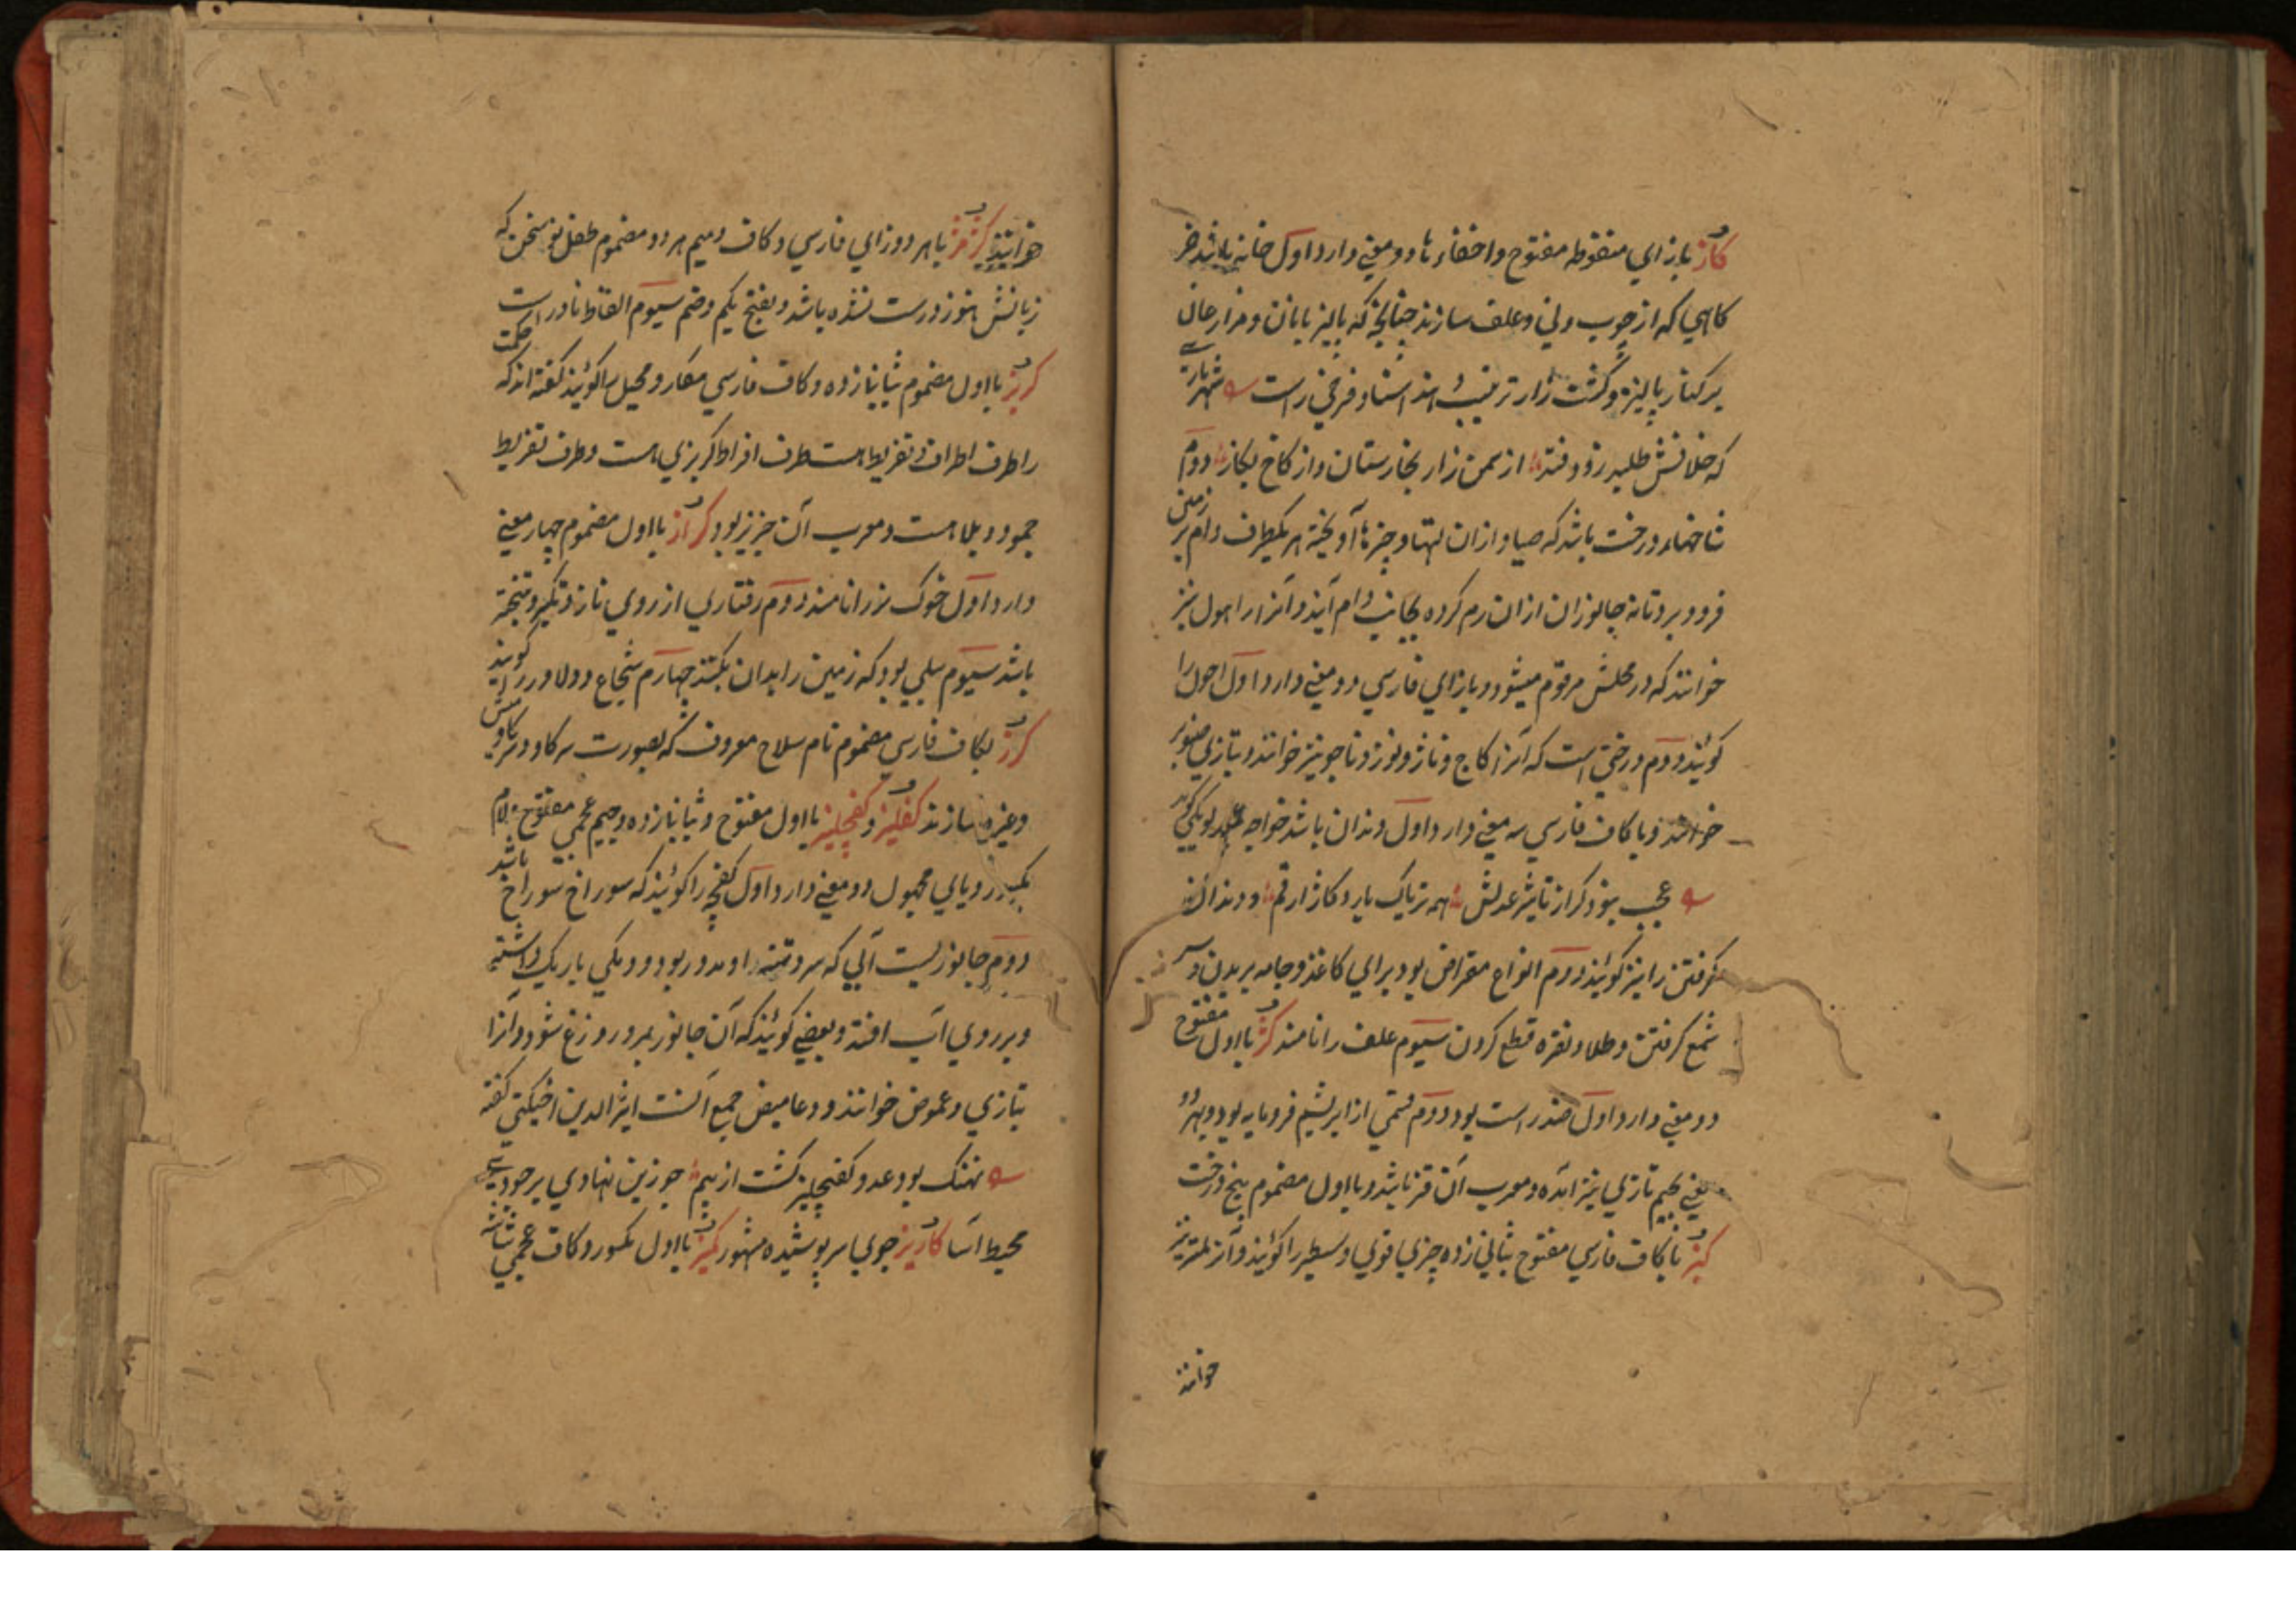 کاز بازای منقوطه مفتوح واخفاء ها دو معنی دارد اول خانه باشد خر
کاهی که از چوب ونی وعلف سازند چنانچه که پالیز بانان ومزارعان
بر کنار پالیزه وکشت زار ترتیب دهند استاد فرخی راست شهریاری
که خلافش طلبد زود فتد از سمن زار بخارستان واز کاخ بکاز دوم
شاخهای درخت باشد که صیاد ازان لتها وچیزها آویخته هر یکطرف دام بر زمین
فرو برد تا نه جانوران ازان رم کرده بجانب دام آیند وآنرا راهول نیز
خوانند که در محلش مرقوم میشود وبازای فارسی دو معنی دارد اول احول را
کویند دوم درختی است که آنرا کاج وناژ ونوژ وناجو نیز خوانند وبتازی صنوبر
خوانند وبا کاف فارسی سه معنی دارد اول دندان باشد خواجه عمید لوبکی کوید
عجب بنود کر از تاثیر عدلش همه تریاک بارد کاز ارقم ودندان
کرفتن را نیز کویند دوم انواع مقراض بود برای کاغذ وجامه بریدن وسر
شمع کرفتن وطلا ونقره قطع کردن سیوم علف را نامند کژ بااول مفتوح
دو معنی دارد اول ضد راست بود دوم قسمی از ابریشم فرومایه بود وبهر دو
معنی بجیم تازی نیز آمده ومعرب آن قز باشد وبااول مضموم بیخ درخت
کبز با کاف فارسی مفتوح بثانی زده چیزی قوی وسطبر را کویند وآنرا
خوانند
خوانند کژمژ باهر دو زای فارسی وکاف ومیم هر دو مضموم طفل نو سخن که
زبانش هنوز درست نشده باشد وبفتح یکم وضم سیوم الفاظ نادرست
کربز بااول مضموم بثانی زده وکاف فارسی مکار ومحیل را کویند کفته اند که حکمت
را طرف اطراف وتفریط هست طرف افراط کربزی هست وطرف تفریط
جمود وبلاهت ومعرب آن جربز بود کراز بااول مضموم چهار معنی
دارد اول خوک نر را نامند دوم رفتاری از روی ناز وتکبر وتبختر
باشد سیوم بیلی بود که زمین را بدان بکنند چهارم شجاع ودلاور را کویند
کرز بکاف فارسی مضموم نام سلاح معروف که بصورت سر کاو وسر کاومیش
وغیره سازند کفلیز وکفچلیز بااول مفتوح وبثانی زده وجیم عجمی مفتوح ولام
مکسور ویای مجهول دو معنی دارد اول کفچه را کویند که سوراخ سوراخ باشد
دوم جانوریست آبی که سر وتنه او مدور بود ودمکی باریک داشته
وبر روی آب افتد وبعضی کویند که آن جانور بمرور وزغ شود وآنرا
بتازی دعموص خوانند ودعامیص جمع آنست اثیرالدین اخسیکتی کفته
نهنک بود عدو کفچلیز کشت از بیم چو زین نهادی بر جودی
محیط آسا کاریز جوی سر پوشیده مشهور کمیز بااول مکسور وکاف عجمی